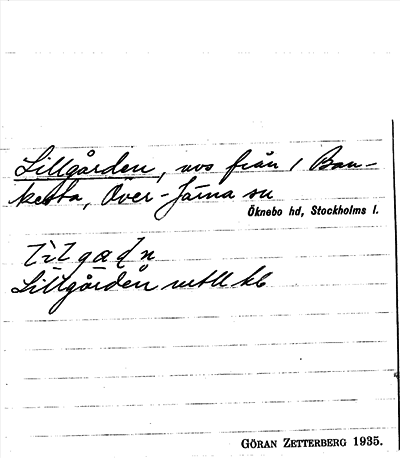 Lillgården, avs från 1 Ban-
kesta, Över-Järna sn
Öknebo hd, Stockholms l.
Lillgården
GÖRAN ZETTERBERG 1935.